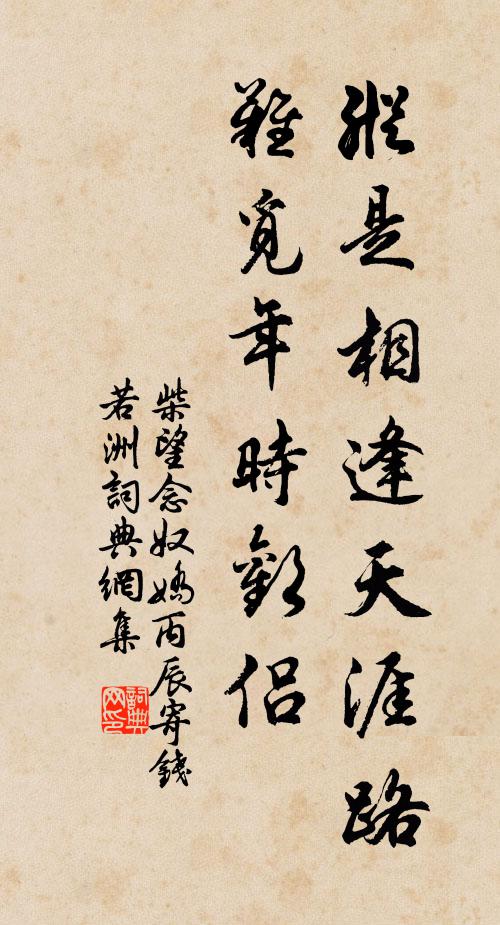 縱是相逢天涯路
難覓年時歡侶
柴望念奴嬌丙辰寄錢
若洲詞典網集
詞典
网印